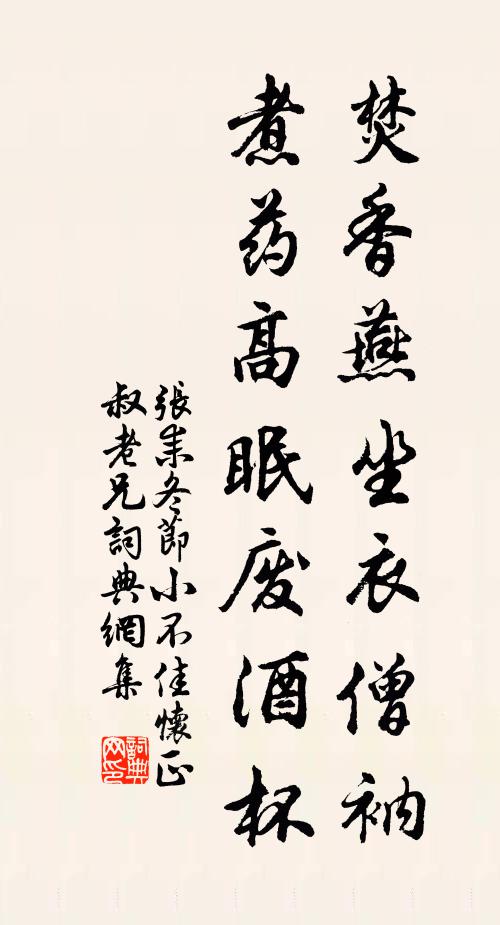 焚香燕坐衣僧衲
煮药高眠废酒杯
張耒冬節小不佳懷正
叔老兄詞典網集
詞典網印